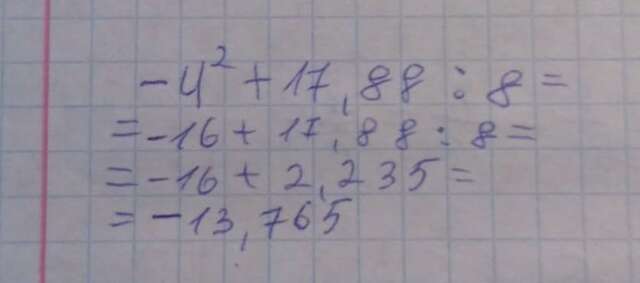 -4² + 17,88 : 8 =
= -16 + 17,88 : 8 =
= -16 + 2,235 =
= -13,765